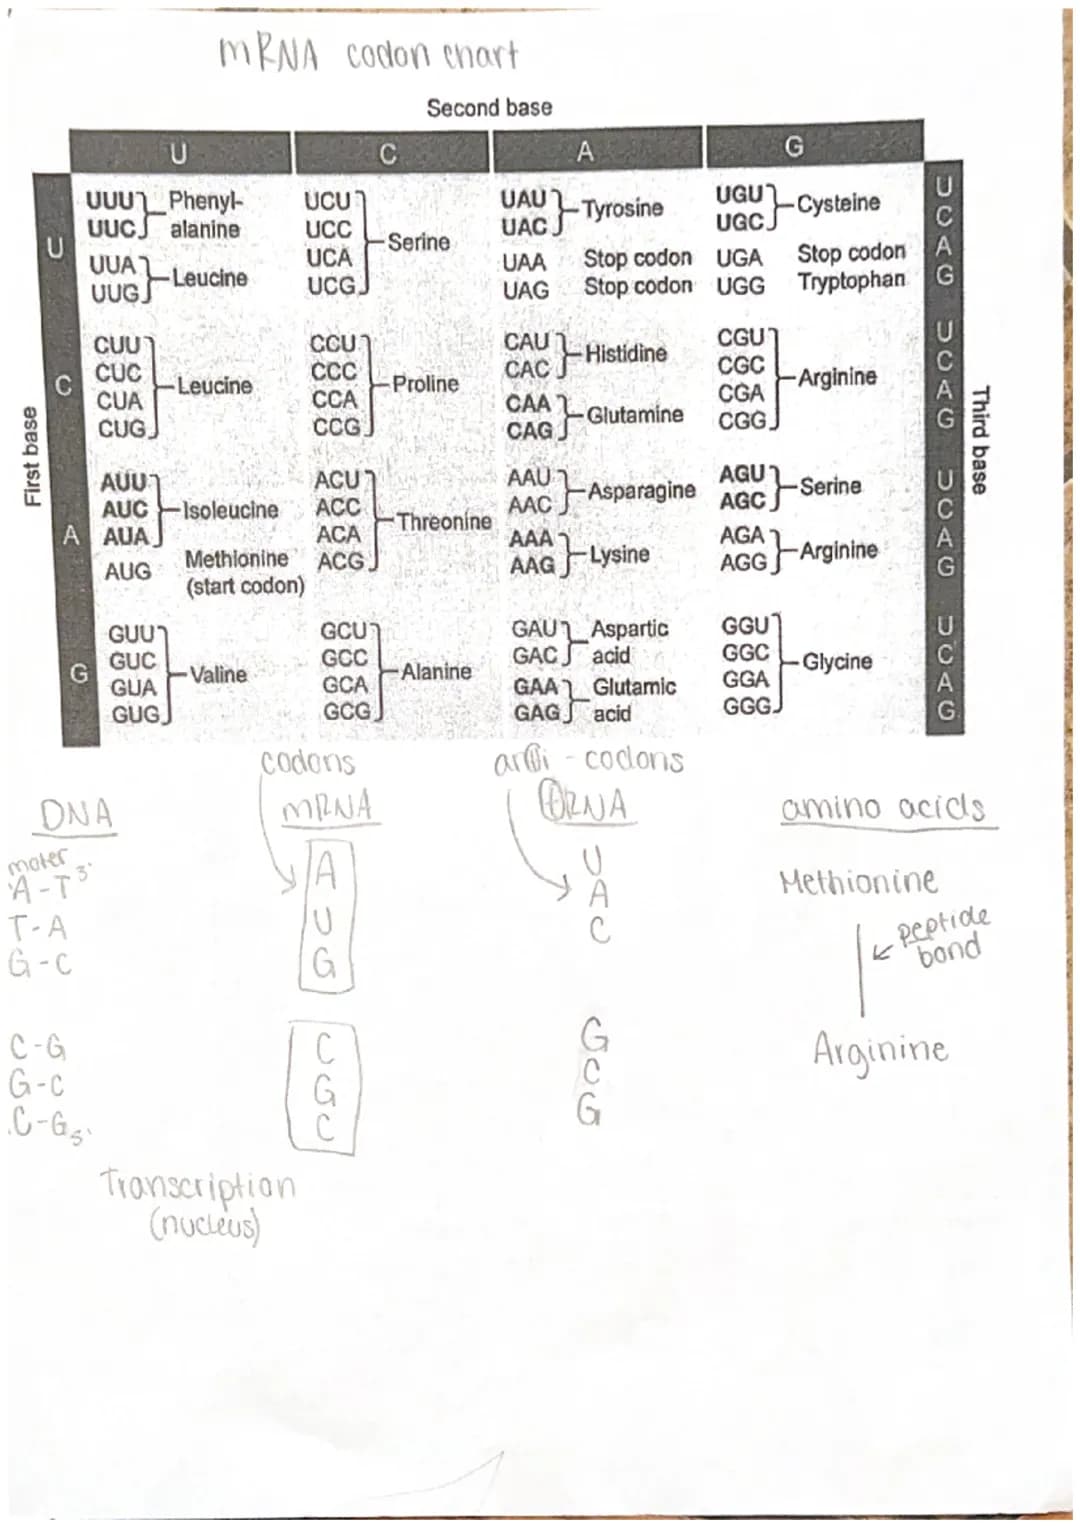 mRNA codon chart
Second base
U C A G
First base
Third base
U
UUU UUC Phenyl-alanine
UUA UUG Leucine
UCU UCC UCA UCG Serine
UAU UAC Tyrosine
UAA Stop codon
UAG Stop codon
UGU UGC Cysteine
UGA Stop codon
UGG Tryptophan
U C A G
C
CUU CUC CUA CUG Leucine
CCU CCC CCA CCG Proline
CAU CAC Histidine
CAA CAG Glutamine
CGU CGC CGA CGG Arginine
U C A G
A
AUU AUC AUA Isoleucine
AUG Methionine (start codon)
ACU ACC ACA ACG Threonine
AAU AAC Asparagine
AAA AAG Lysine
AGU AGC Serine
AGA AGG Arginine
U C A G
G
GUU GUC GUA GUG Valine
GCU GCC GCA GCG Alanine
GAU GAC Aspartic acid
GAA GAG Glutamic acid
GGU GGC GGA GGG Glycine
U C A G
codons anti-codons
DNA mRNA tRNA amino acids
A-T 3' A U Methionine
T-A U A peptide
G-C G C bond
C-G C G Arginine
G-C G C
C-G 5' C G
Transcription
(nucleus)